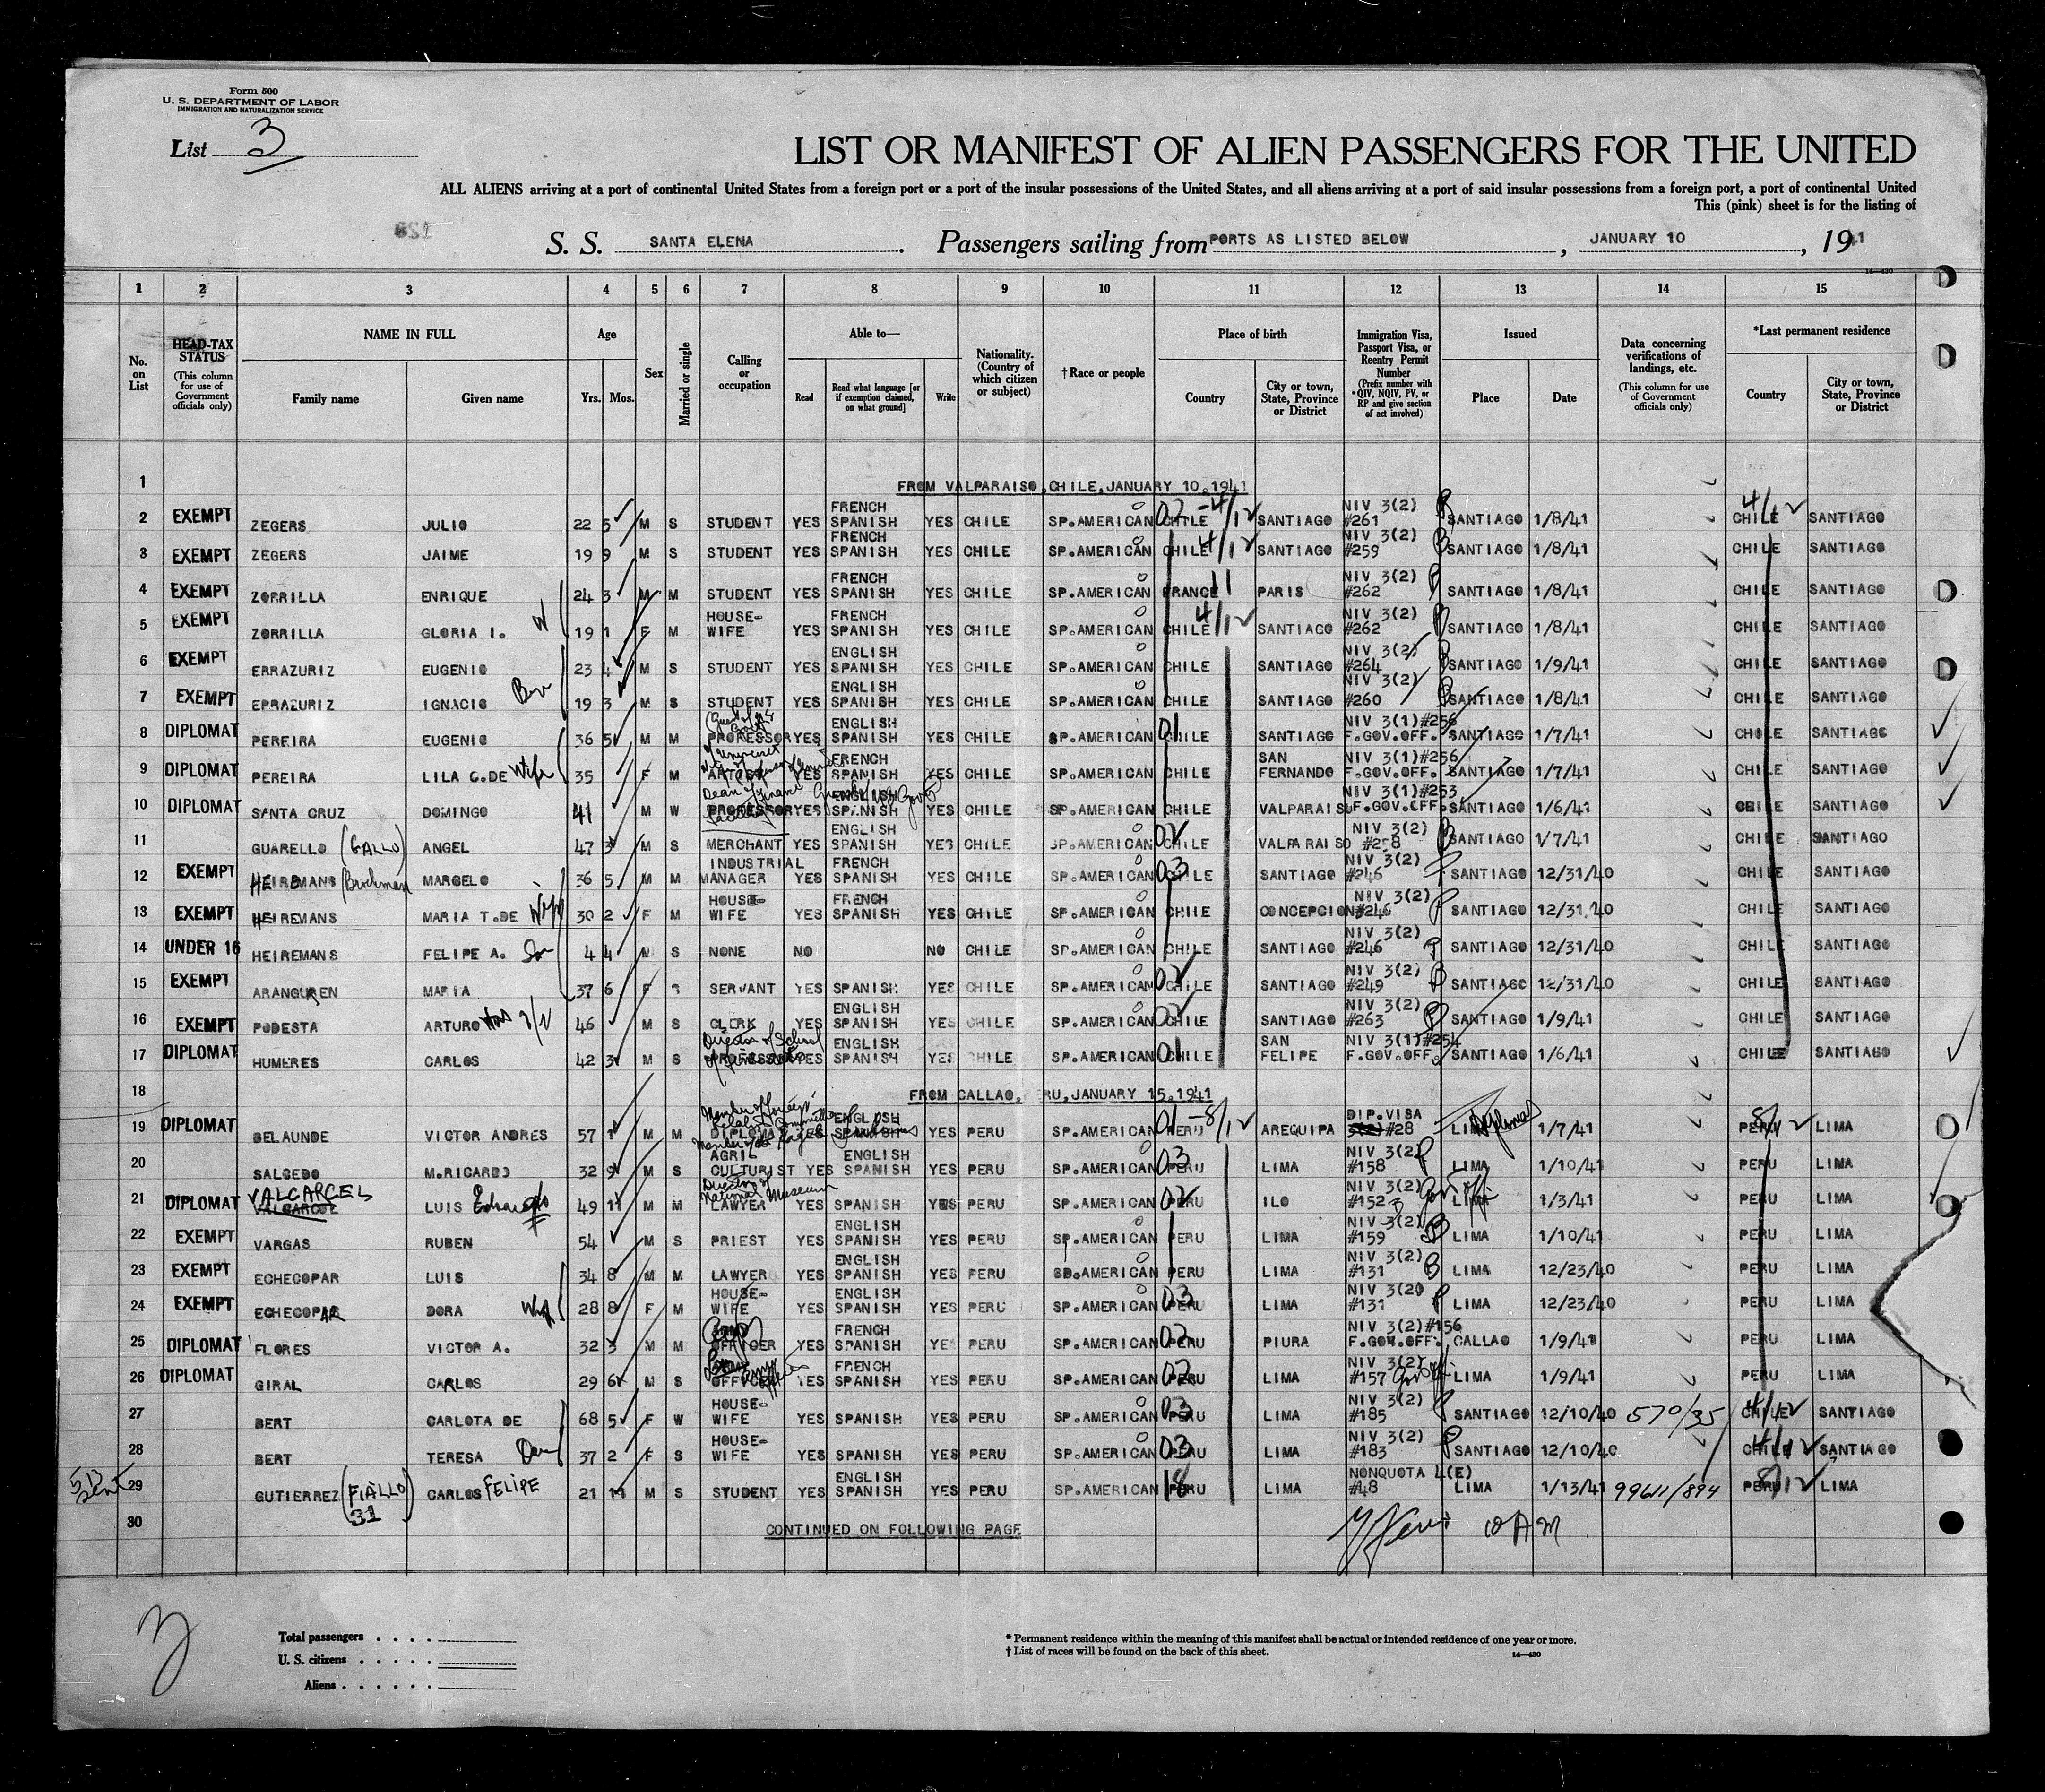 Form 500
U. S. DEPARTMENT OF LABOR
IMMIGRATION AND NATURALIZATION SERVICE
List 3
LIST OR MANIFEST OF ALIEN PASSENGERS FOR THE UNITED
ALL ALIENS arriving at a port of continental United States from a foreign port or a port of the insular possessions of the United States, and all aliens arriving at a port of said insular possessions from a foreign port, a port of continental United
This (pink) sheet is for the listing of
S. S. SANTA ELENA. Passengers sailing from PORTS AS LISTED BELOW, JANUARY 10, 1941
14—430
1 2 3 4 5 6 7 8 9 10 11 12 13 14 15
No. on List
HEAD-TAX STATUS (This column for use of Government officials only)
NAME IN FULL Family name Given name
Age Yrs. Mos.
Sex
Married or single
Calling or occupation
Able to— Read Read what language [or if exemption claimed, on what ground] Write
Nationality. (Country of which citizen or subject)
†Race or people
Place of birth Country City or town, State, Province or District
Immigration Visa, Passport Visa, or Reentry Permit Number (Prefix number with *QIV, NQIV, PV, or RP and give section of act involved)
Issued Place Date
Data concerning verifications of landings, etc. (This column for use of Government officials only)
*Last permanent residence Country City or town, State, Province or District
1 FROM VALPARAISO, CHILE, JANUARY 10, 1941
2 EXEMPT ZEGERS JULIO 22 5 M S STUDENT YES FRENCH SPANISH YES CHILE SP.AMERICAN CHILE 4/12 SANTIAGO NIV 3(2) #261 SANTIAGO 1/8/41 CHILE 4/12 SANTIAGO
3 EXEMPT ZEGERS JAIME 19 9 M S STUDENT YES FRENCH SPANISH YES CHILE SP.AMERICAN CHILE 4/12 SANTIAGO NIV 3(2) #259 SANTIAGO 1/8/41 CHILE SANTIAGO
4 EXEMPT ZORRILLA ENRIQUE 24 3 M M STUDENT YES FRENCH SPANISH YES CHILE SP.AMERICAN FRANCE 11 PARIS NIV 3(2) #262 SANTIAGO 1/8/41 CHILE SANTIAGO
5 EXEMPT ZORRILLA GLORIA I. W 19 1 F M HOUSE-WIFE YES FRENCH SPANISH YES CHILE SP.AMERICAN CHILE 4/12 SANTIAGO NIV 3(2) #262 SANTIAGO 1/8/41 CHILE SANTIAGO
6 EXEMPT ERRAZURIZ EUGENIO 23 4 M S STUDENT YES ENGLISH SPANISH YES CHILE SP.AMERICAN CHILE SANTIAGO NIV 3(2) #264 SANTIAGO 1/9/41 CHILE SANTIAGO
7 EXEMPT ERRAZURIZ IGNACIO Bro 19 3 M S STUDENT YES ENGLISH SPANISH YES CHILE SP.AMERICAN CHILE SANTIAGO NIV 3(2) #260 SANTIAGO 1/8/41 CHILE SANTIAGO
8 DIPLOMAT PEREIRA EUGENIO 36 5 M M PROFESSOR YES ENGLISH SPANISH YES CHILE SP.AMERICAN 01 SANTIAGO NIV 3(1)#256 F.GOV.OFF. SANTIAGO 1/7/41 CHILE SANTIAGO
9 DIPLOMAT PEREIRA LILA C.DE Wife 35 F M ARTIST YES FRENCH SPANISH YES CHILE SP.AMERICAN CHILE SAN FERNANDO NIV 3(1)#256 F.GOV.OFF. SANTIAGO 1/7/41 CHILE SANTIAGO
10 DIPLOMAT SANTA CRUZ DOMINGO 41 M W PROFESSOR Dean YES ENGLISH SPANISH YES CHILE SP.AMERICAN CHILE VALPARAISO NIV 3(1)#253 F.GOV.OFF. SANTIAGO 1/6/41 CHILE SANTIAGO
11 GUARELLO (GALLO) ANGEL 47 3 M S MERCHANT YES ENGLISH SPANISH YES CHILE SP.AMERICAN 02 CHILE VALPARAISO NIV 3(2) #258 SANTIAGO 1/7/41 CHILE SANTIAGO
12 EXEMPT HEIREMANS (Brockman MARCELO 36 5 M M INDUSTRIAL MANAGER YES FRENCH SPANISH YES CHILE SP.AMERICAN 03 CHILE SANTIAGO NIV 3(2) #246 SANTIAGO 12/31/40 CHILE SANTIAGO
13 EXEMPT HEIREMANS MARIA T.DE Wife 30 2 F M HOUSE-WIFE YES FRENCH SPANISH YES CHILE SP.AMERICAN CHILE CONCEPCION NIV 3(2) #246 SANTIAGO 12/31/40 CHILE SANTIAGO
14 UNDER 16 HEIREMANS FELIPE A. Son 4 4 M S NONE NO NO CHILE SP.AMERICAN CHILE SANTIAGO NIV 3(2) #246 SANTIAGO 12/31/40 CHILE SANTIAGO
15 EXEMPT ARANGUREN MARIA 37 6 F S SERVANT YES SPANISH YES CHILE SP.AMERICAN 02 CHILE SANTIAGO NIV 3(2) #249 SANTIAGO 12/31/40 CHILE SANTIAGO
16 EXEMPT PODESTA ARTURO 46 M S CLERK YES ENGLISH SPANISH YES CHILE SP.AMERICAN 02 CHILE SANTIAGO NIV 3(2) #263 SANTIAGO 1/9/41 CHILE SANTIAGO
17 DIPLOMAT HUMERES CARLOS 42 3 M S Director of School of PROFESSOR YES ENGLISH SPANISH YES CHILE SP.AMERICAN 01 CHILE SAN FELIPE NIV 3(1)#254 F.GOV.OFF. SANTIAGO 1/6/41 CHILE SANTIAGO
18 FROM CALLAO, PERU, JANUARY 15, 1941
19 DIPLOMAT BELAUNDE VICTOR ANDRES 57 1 M M DIPLOMAT YES ENGLISH SPANISH YES PERU SP.AMERICAN 01 PERU 8/12 AREQUIPA DIP.VISA #28 LIMA Diplomat 1/7/41 PERU 8/12 LIMA
20 SALCEDO M.RICARDO 32 9 M S AGRICULTURIST YES ENGLISH SPANISH YES PERU SP.AMERICAN 03 PERU LIMA NIV 3(2) #158 LIMA 1/10/41 PERU LIMA
21 DIPLOMAT VALCARCEL LUIS Eduardo 49 11 M M Director of National Museum LAWYER YES SPANISH YES PERU SP.AMERICAN 02 PERU ILO NIV 3(2) #152 Gov Off LIMA 1/3/41 PERU LIMA
22 EXEMPT VARGAS RUBEN 54 M S PRIEST YES ENGLISH SPANISH YES PERU SP.AMERICAN PERU LIMA NIV 3(2) #159 LIMA 1/10/41 PERU LIMA
23 EXEMPT ECHECOPAR LUIS 34 8 M M LAWYER YES ENGLISH SPANISH YES PERU SP.AMERICAN PERU LIMA NIV 3(2) #131 LIMA 12/23/40 PERU LIMA
24 EXEMPT ECHECOPAR DORA Wife 28 8 F M HOUSE-WIFE YES ENGLISH SPANISH YES PERU SP.AMERICAN 03 PERU LIMA NIV 3(20 #131 LIMA 12/23/40 PERU LIMA
25 DIPLOMAT FLORES VICTOR A. 32 3 M M OFFICER YES FRENCH SPANISH YES PERU SP.AMERICAN 02 PERU PIURA NIV 3(2)#156 F.GOV.OFF. CALLAO 1/9/41 PERU LIMA
26 DIPLOMAT GIRAL CARLOS 29 6 M S OFFICER YES FRENCH SPANISH YES PERU SP.AMERICAN 02 PERU LIMA NIV 3(2) #157 Gov Off LIMA 1/9/41 PERU LIMA
27 BERT CARLOTA DE 68 5 F W HOUSE-WIFE YES SPANISH YES PERU SP.AMERICAN 03 PERU LIMA NIV 3(2) #185 SANTIAGO 12/10/40 570/35 CHILE 4/12 SANTIAGO
28 BERT TERESA Dau 37 2 F S HOUSE-WIFE YES SPANISH YES PERU SP.AMERICAN 03 PERU LIMA NIV 3(2) #183 SANTIAGO 12/10/40 CHILE 4/12 SANTIAGO
29 GUTIERREZ (FIALLO) 31 CARLOS FELIPE 21 11 M S STUDENT YES ENGLISH SPANISH YES PERU SP.AMERICAN 18 LIMA NONQUOTA 4(E) #48 LIMA 1/13/41 99611/894 PERU 8/12 LIMA
30 CONTINUED ON FOLLOWING PAGE 10 AM
Total passengers . . . .
U. S. citizens . . . . .
Aliens . . . . . .
* Permanent residence within the meaning of this manifest shall be actual or intended residence of one year or more.
† List of races will be found on the back of this sheet.
14—430